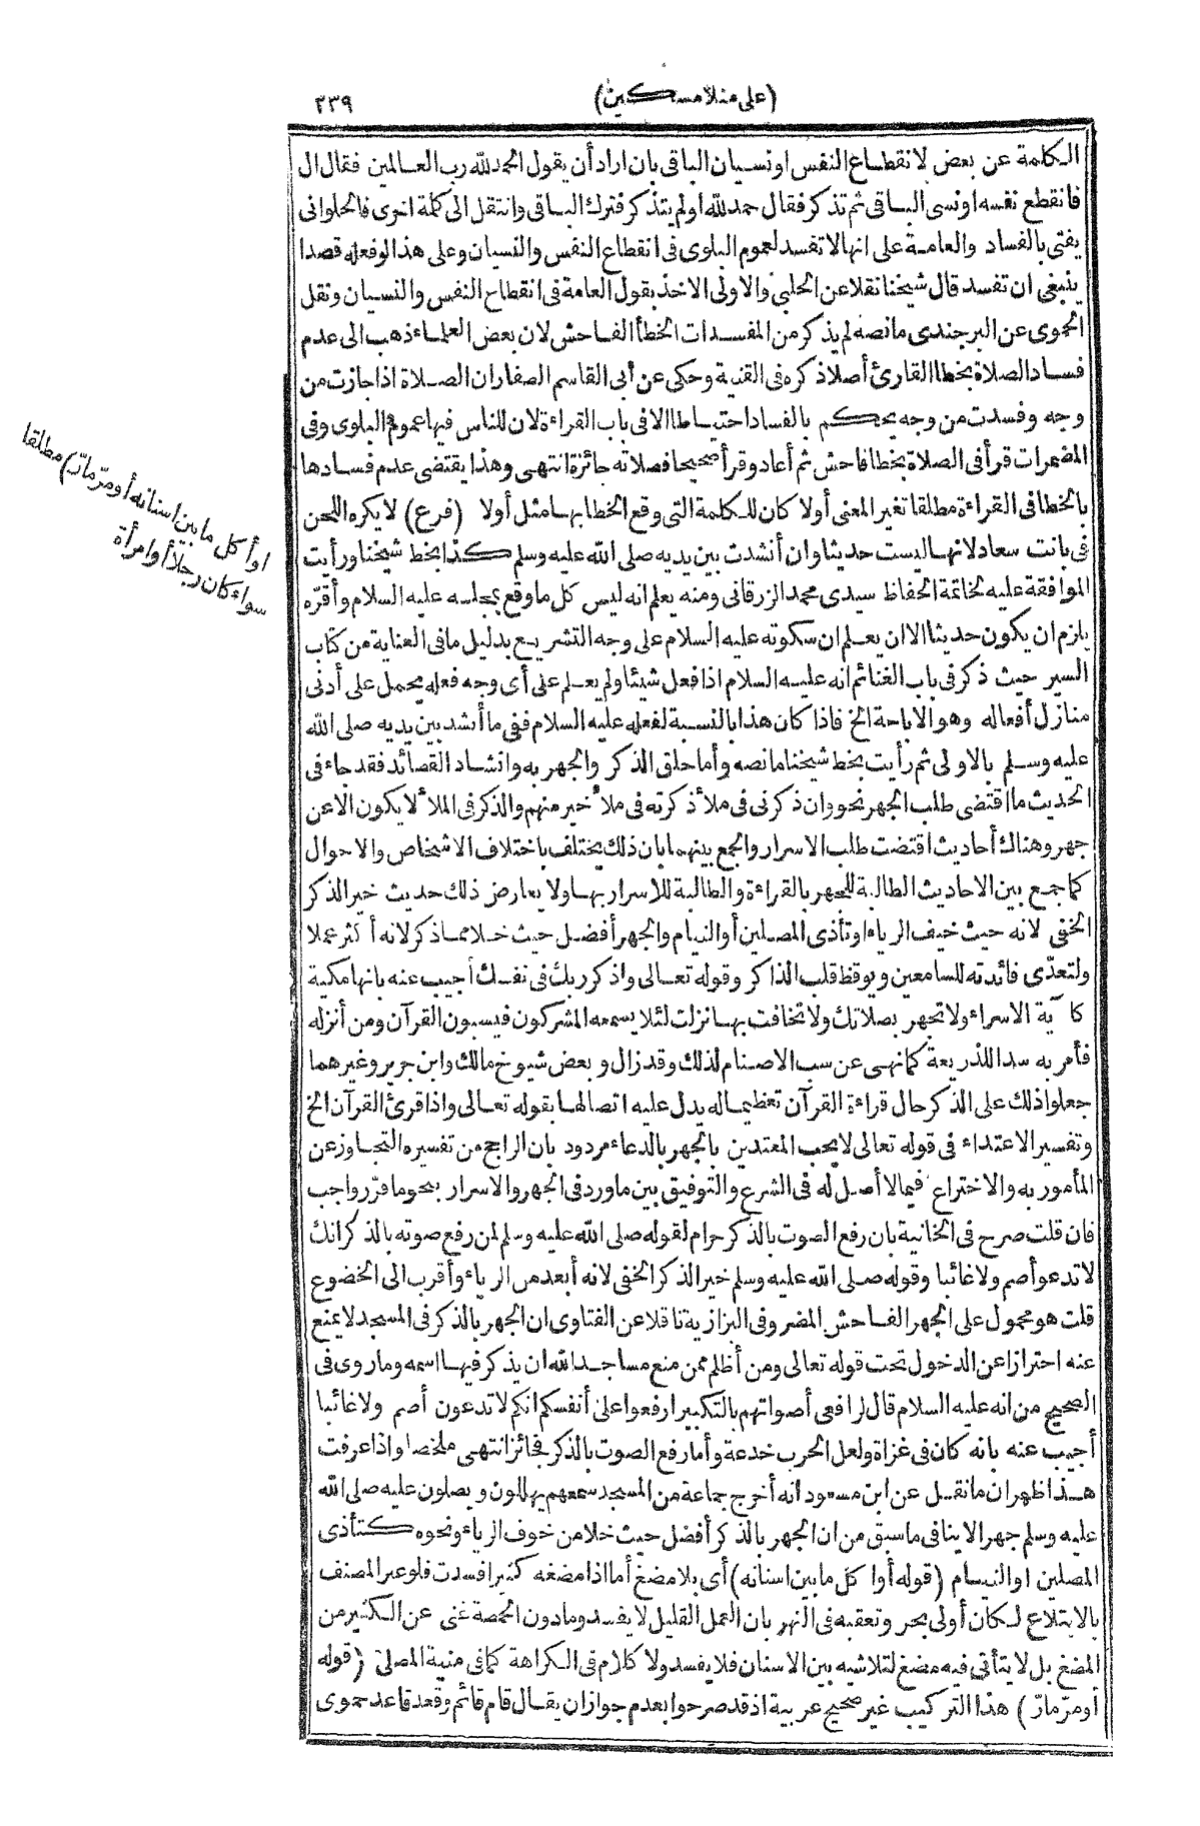 (على منلا مسكين)
٢٣٩
الكلمة عن بعض لانقطاع النفس او نسيان الباقى بان اراد أن يقول الحمد لله رب العالمين فقال ال
فانقطع نفسه او نسى الباقى ثم تذكر فقال حمد لله او لم يتذكر فترك الباقى وانتقل الى كلمة اخرى فالحلوانى
يفتى بالفساد والعامة على انها لا تفسد لعموم البلوى فى انقطاع النفس والنسيان وعلى هذا لو فعله قصدا
ينبغى ان تفسد قال شيخنا نقلا عن الحلبى والاولى الاخذ بقول العامة فى انقطاع النفس والنسيان ونقل
الحموى عن البرجندى مانصه لم يذكر من المفسدات الخطأ الفاحش لان بعض العلماء ذهب الى عدم
فساد الصلاة بخطا القارئ أصلا ذكره فى القنية وحكى عن أبى القاسم الصفار ان الصلاة اذا جازت من
وجه وفسدت من وجه يحكم بالفساد احتياطا الا فى باب القراءة لان للناس فيها عموم البلوى وفى
المضمرات قرأ فى الصلاة بخطا فاحش ثم أعاد وقرأ صحيحا فصلاته جائزة انتهى وهذا يقتضى عدم فسادها
بالخطا فى القراءة مطلقا تغير المعنى أولا كان للكلمة التى وقع الخطا بها مثل أولا (فرع) لا يكره اللحن
فى بانت سعاد لانها ليست حديثا وان أنشدت بين يديه صلى الله عليه وسلم كذا بخط شيخنا ورأيت
الموافقة عليه لخاتمة الحفاظ سيدى محمد الزرقانى ومنه يعلم انه ليس كل ما وقع بمجلسه عليه السلام وأقره
يلزم ان يكون حديثا الا ان يعلم ان سكوته عليه السلام على وجه التشريع بدليل مافى العناية من كتاب
السير حيث ذكر فى باب الغنائم انه عليه السلام اذا فعل شيئا ولم يعلم على أى وجه فعله يحمل على أدنى
منازل أفعاله وهو الاباحة الخ فاذا كان هذا بالنسبة لفعله عليه السلام ففى ما أنشد بين يديه صلى الله
عليه وسلم بالاولى ثم رأيت بخط شيخنا مانصه وأما حلق الذكر والجهر به وانشاد القصائد فقد جاء فى
الحديث ما اقتضى طلب الجهر نحو وان ذكرنى فى ملأ ذكرته فى ملأ خير منهم والذكر فى الملأ لا يكون الا عن
جهر وهناك أحاديث اقتضت طلب الاسرار والجمع بينهما بان ذلك يختلف باختلاف الاشخاص والاحوال
كما جمع بين الاحاديث الطالبة للجهر بالقراءة والطالبة للاسرار بها ولا يعارض ذلك حديث خير الذكر
الخفى لانه حيث خيف الرياء او تأذى المصلين أو النيام والجهر أفضل حيث خلا مما ذكر لانه أكثر عملا
ولتعدى فائدته للسامعين ويوقظ قلب الذاكر وقوله تعالى واذكر ربك فى نفسك أجيب عنه بانها مكية
كآية الاسراء ولا تجهر بصلاتك ولا تخافت بها نزلت لئلا يسمعه المشركون فيسبون القرآن ومن أنزله
فأمر به سدا للذريعة كما نهى عن سب الاصنام لذلك وقد زال وبعض شيوخ مالك وابن جرير وغيرهما
جعلوا ذلك على الذكر حال قراءة القرآن تعظيما له يدل عليه اتصالها بقوله تعالى واذا قرئ القرآن الخ
وتفسير الاعتداء فى قوله تعالى لا يحب المعتدين بالجهر بالدعاء مردود بان الراجح من تفسيره التجاوز عن
المأمور به والاختراع فيما لا أصل له فى الشرع والتوفيق بين ما ورد فى الجهر والاسرار بنحو ما قرر واجب
فان قلت صرح فى الخانية بان رفع الصوت بالذكر حرام لقوله صلى الله عليه وسلم لمن رفع صوته بالذكر انك
لا تدعو أصم ولا غائبا وقوله صلى الله عليه وسلم خير الذكر الخفى لانه أبعد من الرياء وأقرب الى الخضوع
قلت هو محمول على الجهر الفاحش المضر وفى البزازية ناقلا عن الفتاوى ان الجهر بالذكر فى المسجد لا يمنع
عنه احترازا عن الدخول تحت قوله تعالى ومن أظلم ممن منع مساجد الله ان يذكر فيها اسمه وما روى فى
الصحيح من انه عليه السلام قال لرافعى أصواتهم بالتكبير ارفعوا على أنفسكم انكم لا تدعون أصم ولا غائبا
أجيب عنه بانه كان فى غزاة ولعل الحرب خدعة وأما رفع الصوت بالذكر فجائز انتهى ملخصا واذا عرفت
هذا ظهر ان ما نقل عن ابن مسعود انه أخرج جماعة من المسجد سمعهم يهللون ويصلون عليه صلى الله
عليه وسلم جهرا لا ينافى ما سبق من ان الجهر بالذكر أفضل حيث خلا من خوف الرياء ونحوه كتأذى
المصلين او النيام (قوله أو اكل ما بين اسنانه) أى بلا مضغ أما اذا مضغه كثيرا فسدت فلو عبر المصنف
بالابتلاع لكان أولى بحر وتعقبه فى النهر بان العمل القليل لا يفسد وما دون الحمصة غنى عن الكثير من
المضغ بل لا يتأتى فيه مضغ لتلاشيه بين الاسنان فلا يفسد ولا كلام فى الكراهة كما فى منية المصلى (قوله
أو مرّ مارّ) هذا التركيب غير صحيح عربية اذ قد صرحوا بعدم جواز ان يقال قام قائم وقعد قاعد حموى
او أكل ما بين اسنانه أو مرّ مارّ) مطلقا
سواء كان رجلا أو امرأة